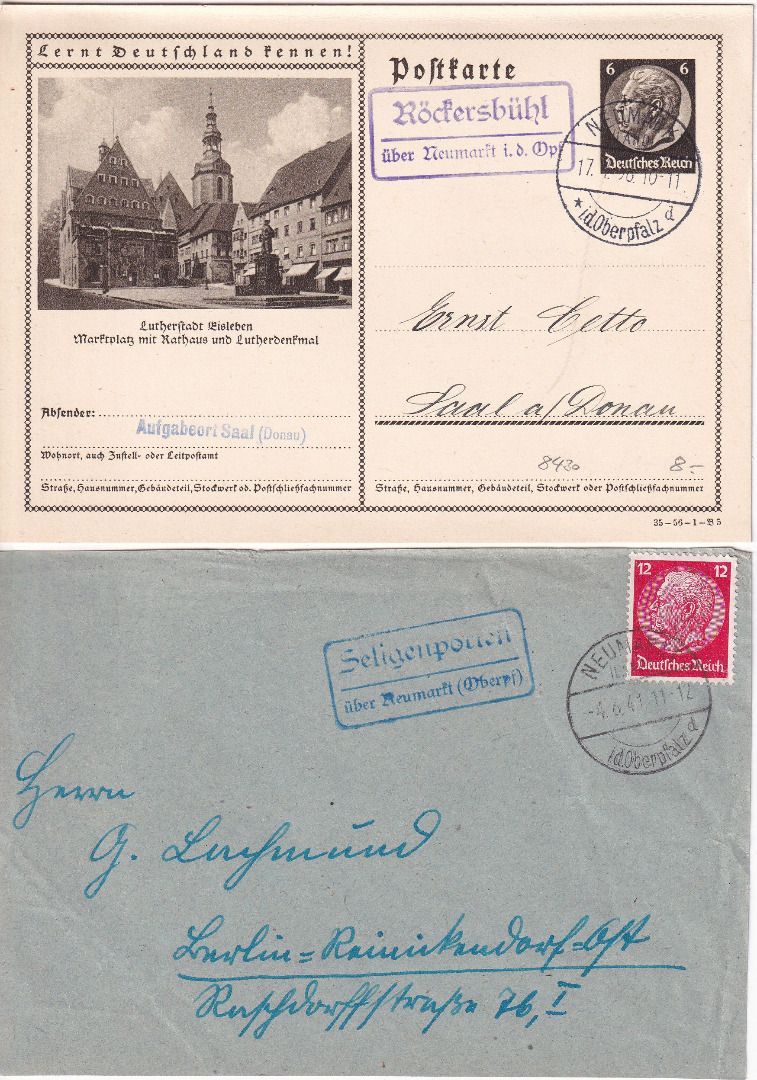 Lernt Deutschland kennen!
Postkarte
6 6
Deutsches Reich
Röckersbühl
über Neumarkt i. d. Opf
NEUM
17. 10-11
★ i.d. Oberpfalz d
Lutherstadt Eisleben
Marktplatz mit Rathaus und Lutherdenkmal
Ernst Cetto
Saal a/Donau
Absender:
Aufgabeort Saal (Donau)
Wohnort, auch Zustell- oder Leitpostamt
8430 8.-
Straße, Hausnummer, Gebäudeteil, Stockwerk od. Postschließfachnummer
Straße, Hausnummer, Gebäudeteil, Stockwerk oder Postschließfachnummer
35-56-1-B5
12 12
Deutsches Reich
Seligenporten
über Neumarkt (Oberpf)
NEUMA
-4.6.41.11-12
i.d. Oberpfalz d
Herrn
G. Lachmund
Berlin=Reinickendorf=Ost
Raschdorffstraße 76, I